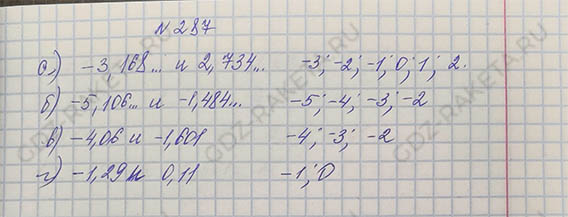 № 287
а) -3 168... и 2,734... -3; -2; -1; 0; 1; 2.
б) -5,106... и -1,484... -5; -4; -3; -2
в) -4,06 и -1,601 -4; -3; -2
г) -1,29 и 0,11 -1; 0
GDZ-RAKETA.RU